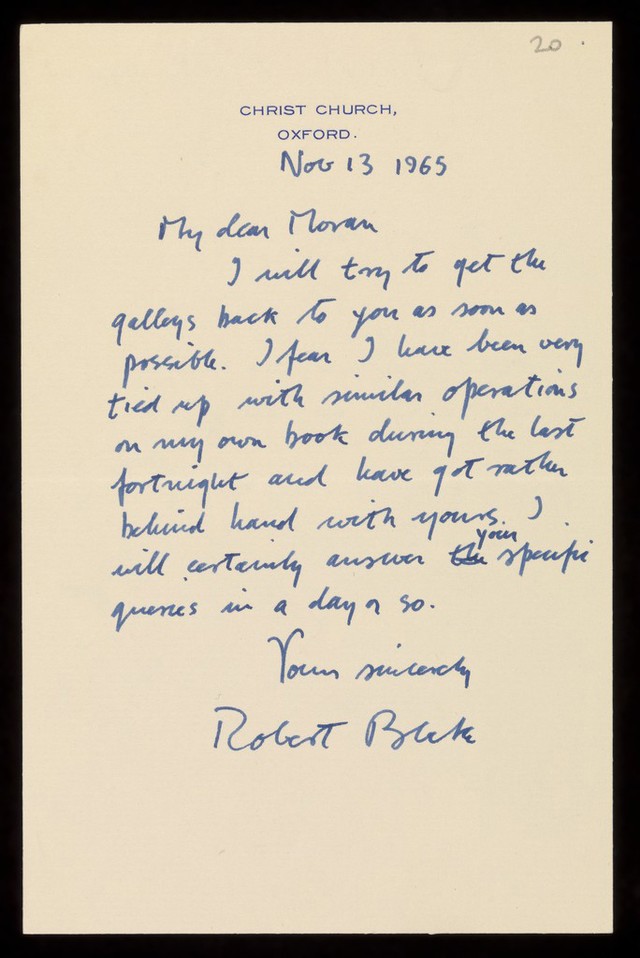 20
CHRIST CHURCH,
OXFORD.
Nov 13 1965
My dear Moran
I will try to get the
galleys back to you as soon as
possible. I fear I have been very
tied up with similar operations
on my own book during the last
fortnight and have got rather
behind hand with yours. I
your
will certainly answer the specific
queries in a day or so.
Yours sincerely
Robert Blake